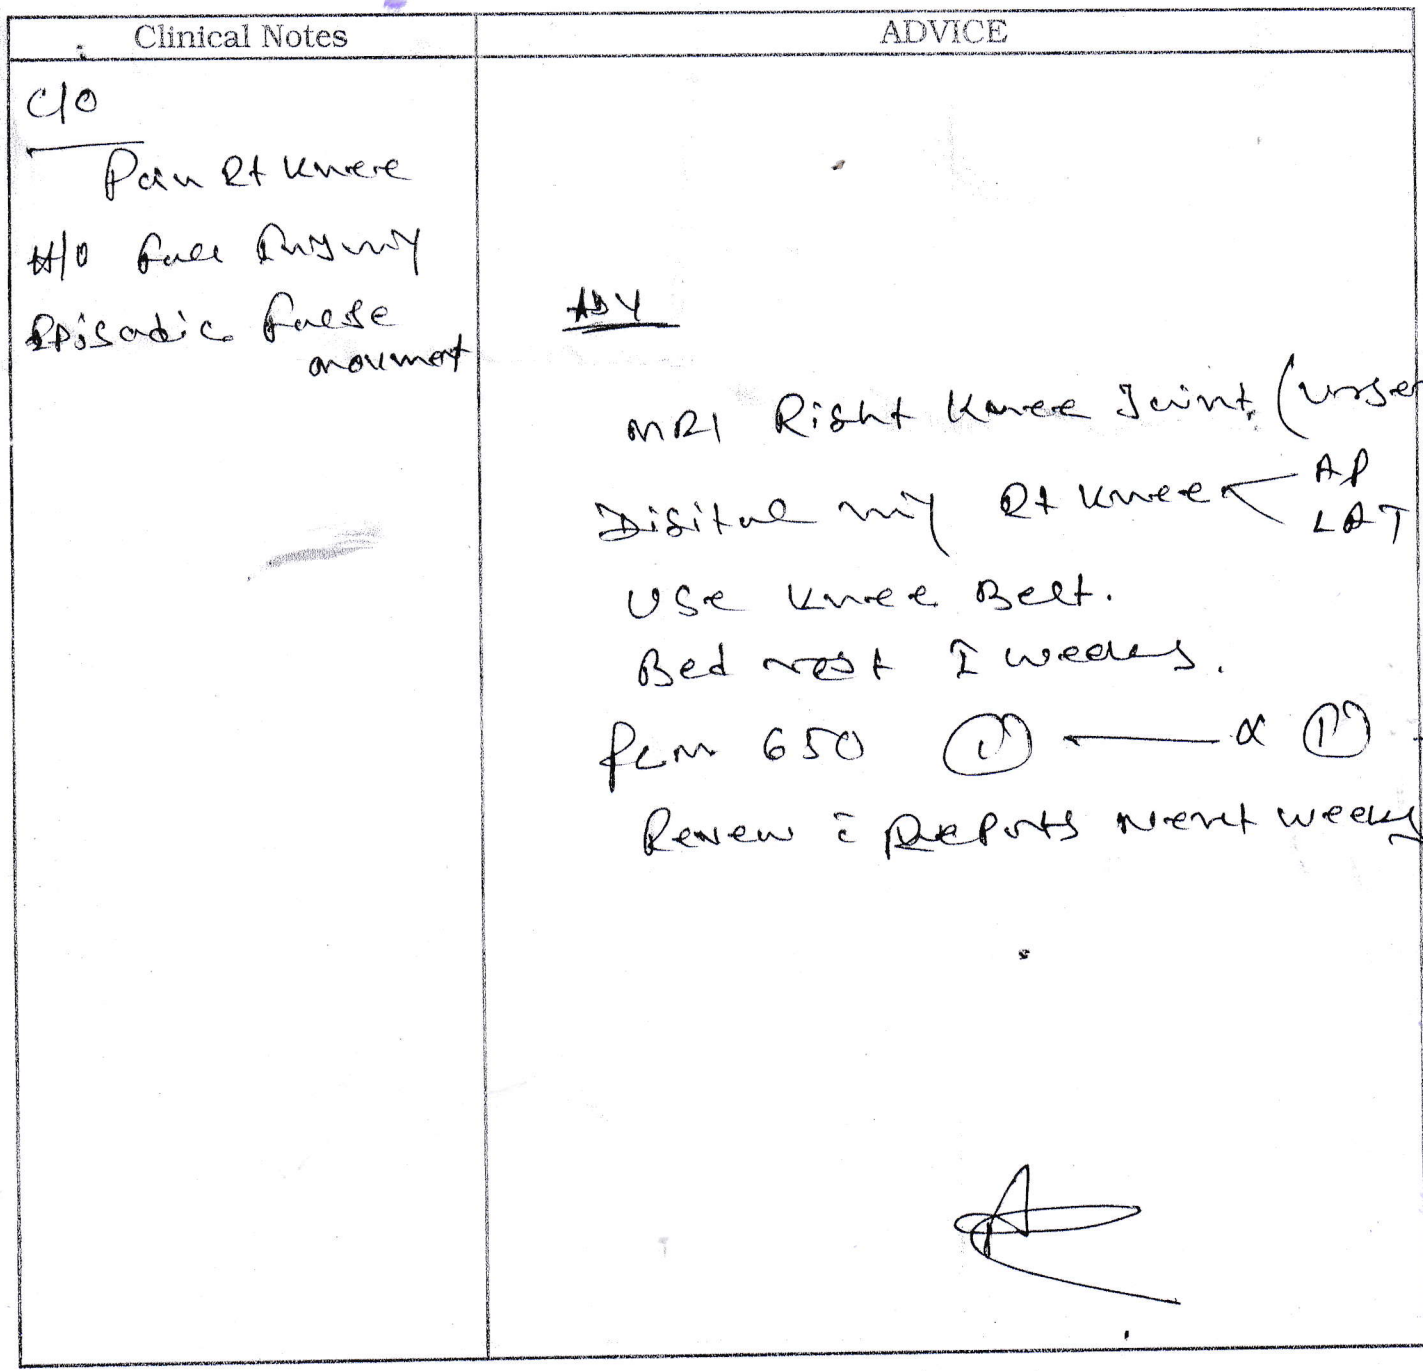 Clinical Notes
ADVICE
C/O
Pain Rt Knee
H/O Fall Injury
Episodic False
movment
ADV
MRI Right Knee Joint (urgen
Digital Rt Knee < AP
LAT
Use Knee Belt.
Bed rest weeks.
Pcm 650 ① — x ①
Review c̄ Reports Next weeks